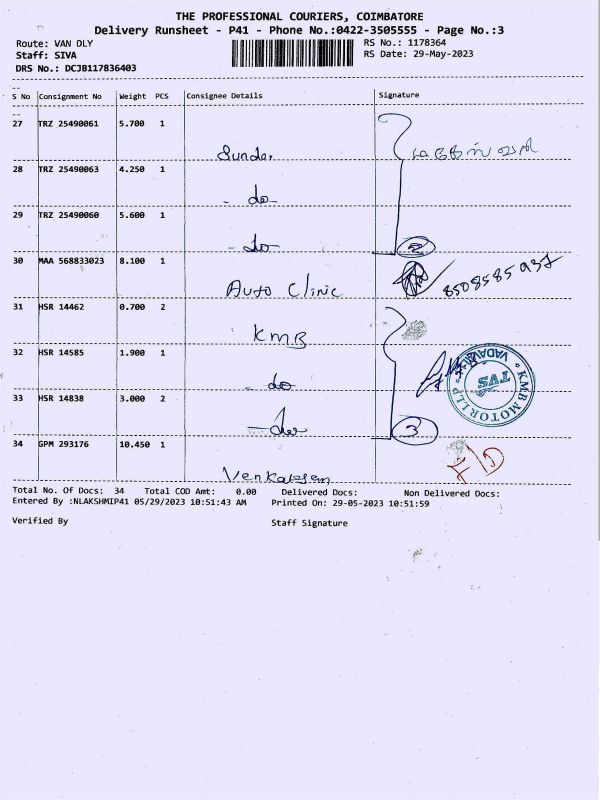 THE PROFESSIONAL COURIERS, COIMBATORE
Delivery Runsheet - P41 - Phone No.:0422-3505555 - Page No.:3
Route: VAN DLY RS No.: 1178364
Staff: SIVA RS Date: 29-May-2023
DRS No.: DCJB117836403
S No Consignment No Weight PCS Consignee Details Signature
27 TRZ 25490061 5.700 1
Sunder
28 TRZ 25490063 4.250 1
- do
29 TRZ 25490060 5.600 1
- do 2
30 MAA 568833023 8.100 1
Auto Clinic 8508585937
31 HSR 14462 0.700 2
KMB
32 HSR 14585 1.900 1
- do
KMB MOTOR LLP
TVS
33 HSR 14838 3.000 2
- do 3
34 GPM 293176 10.450 1
F/D
Venkatesan
Total No. Of Docs: 34 Total COD Amt: 0.00 Delivered Docs: Non Delivered Docs:
Entered By :NLAKSHMIP41 05/29/2023 10:51:43 AM Printed On: 29-05-2023 10:51:59
Verified By Staff Signature